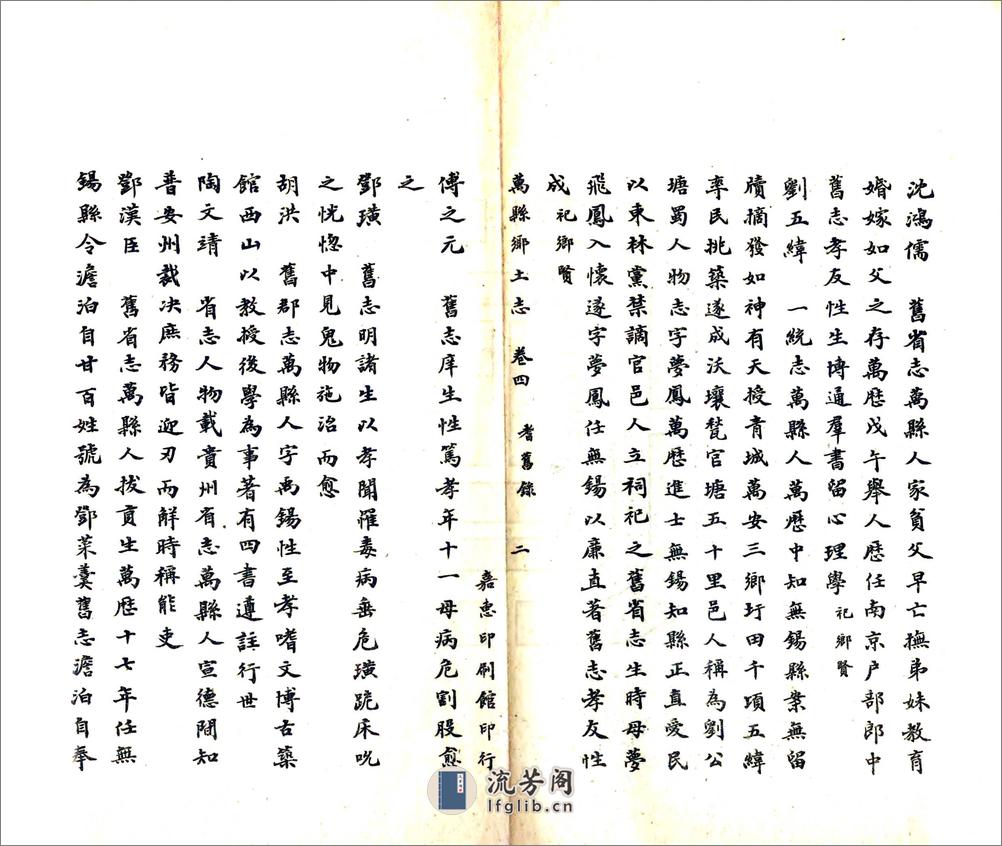 沈鴻儒　舊省志萬縣人家貧父早亡撫弟妹教育
婚嫁如父之存萬歷戊午舉人歷任南京户部郎中
舊志孝友性生博通羣書留心理學祀鄉賢
劉五緯　一統志萬縣人萬歷中知無錫縣案無留
牘摘發如神有天授青城萬安三鄉圩田千頃五緯
率民挑築遂成沃壤甃官塘五十里邑人稱為劉公
塘蜀人物志字夢鳳萬歷進士無錫知縣正直愛民
以東林黨禁謫官邑人立祠祀之舊省志生時母夢
飛鳳入懷遂字夢鳳任無錫以廉直著舊志孝友性
成祀鄉賢
萬縣鄉土志　卷四　耆舊錄　二
嘉惠印刷館印行
傅之元　舊志庠生性篤孝年十一母病危割股愈
之
鄧璜　舊志明諸生以孝聞罹毒病垂危璜跪床呪
之恍惚中見鬼物施治而愈
胡洪　舊郡志萬縣人字禹錫性至孝嗜文博古築
館西山以教授後學為事著有四書遵註行世
陶文靖　省志人物載貴州省志萬縣人宣德間知
普安州裁决庶務皆迎刃而解時稱能吏
鄧漢臣　舊省志萬縣人拔貢生萬歷十七年任無
錫縣令澹泊自甘百姓號為鄧菜羹舊志澹泊自奉
流芳阁
lfglib.cn